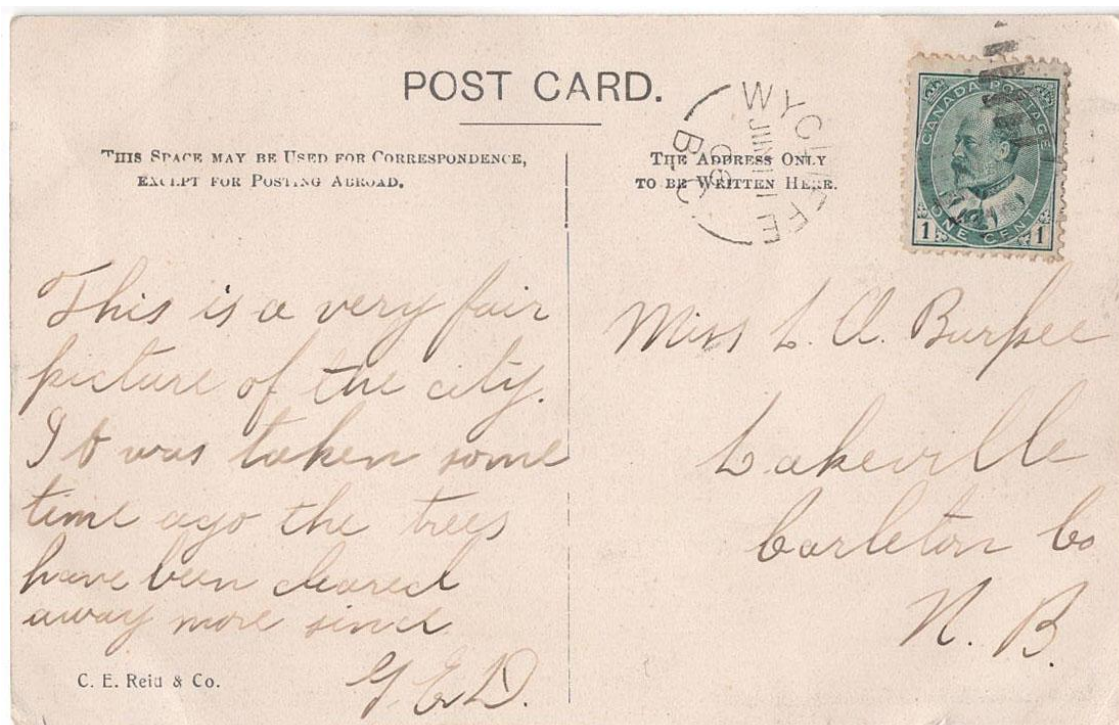 POST CARD.
THIS SPACE MAY BE USED FOR CORRESPONDENCE,
EXCEPT FOR POSTING ABROAD.
THE ADDRESS ONLY
TO BE WRITTEN HERE.
WYCLIFFE
JUN 11
09
B.C
CANADA POSTAGE
ONE CENT
1 1
This is a very fair
picture of the city.
It was taken some
time ago the trees
have been cleared
away more since
G.E.D.
Miss L. A. Burpee
Lakeville
Carleton Co
N. B.
C. E. Reid & Co.